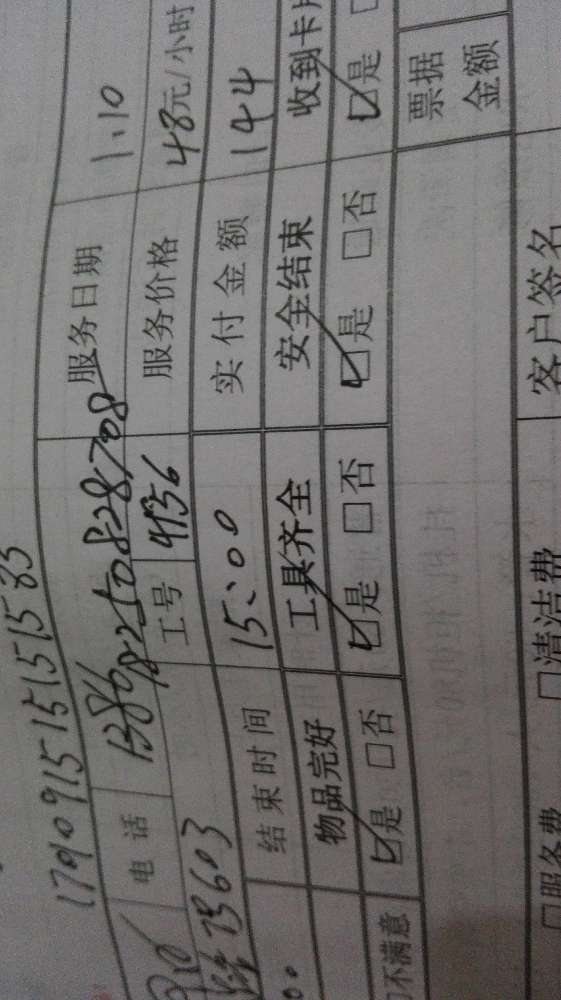 179091515151583
电话 服务日期 1.10
工号 4136 服务价格 48元/小时
73603
结束时间 15:00 实付金额 144
物品完好 工具齐全 安全结束 收到卡片
不满意 ☑是 □否 ☑是 □否 ☑是 □否 ☑是
票据金额
□服务费 □清洁费 客户签名